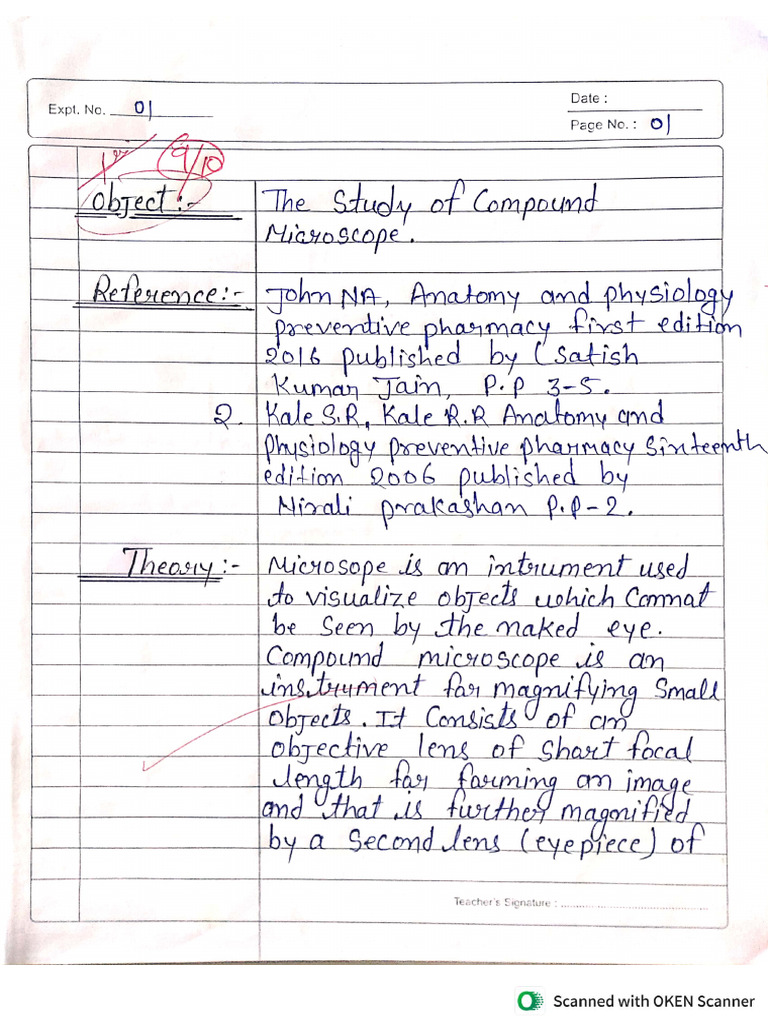 Expt. No. 01
Date :
Page No. : 01
1st
9/10
Object :- The Study of Compound
Microscope.
Reference:- John NA, Anatomy and physiology
preventive pharmacy first edition
2016 published by (Satish
Kumar Jain, P.P 3-5.
2. Kale S.R, Kale R.R Anatomy and
Physiology preventive pharmacy Sinteenth
edition 2006 published by
Nirali prakashan P.P-2.
Theory :- Microsope is an intrument used
to visualize objects which Connat
be Seen by the naked eye.
Compound microscope is an
instrument far magnifying Small
Objects. It Consists of an
objective lens of Shart focal
length far farming an image
and that is further magnified
by a Second lens (eyepiece) of
Teacher's Signature : ................
Scanned with OKEN Scanner